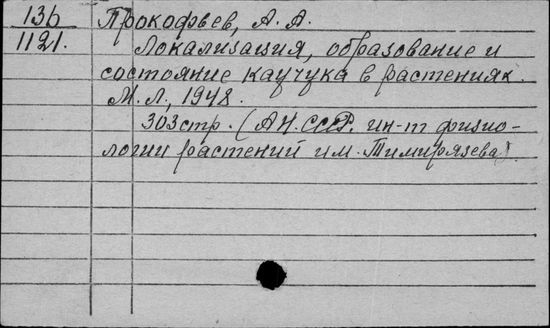 136 Прокофьев, А. А.
1121. Локализация, образование и
состояние каучука в растениях.
М. Л., 1948.
303 стр. (АН. СССР. ин-т физио-
логии растений им. Тимирязева).